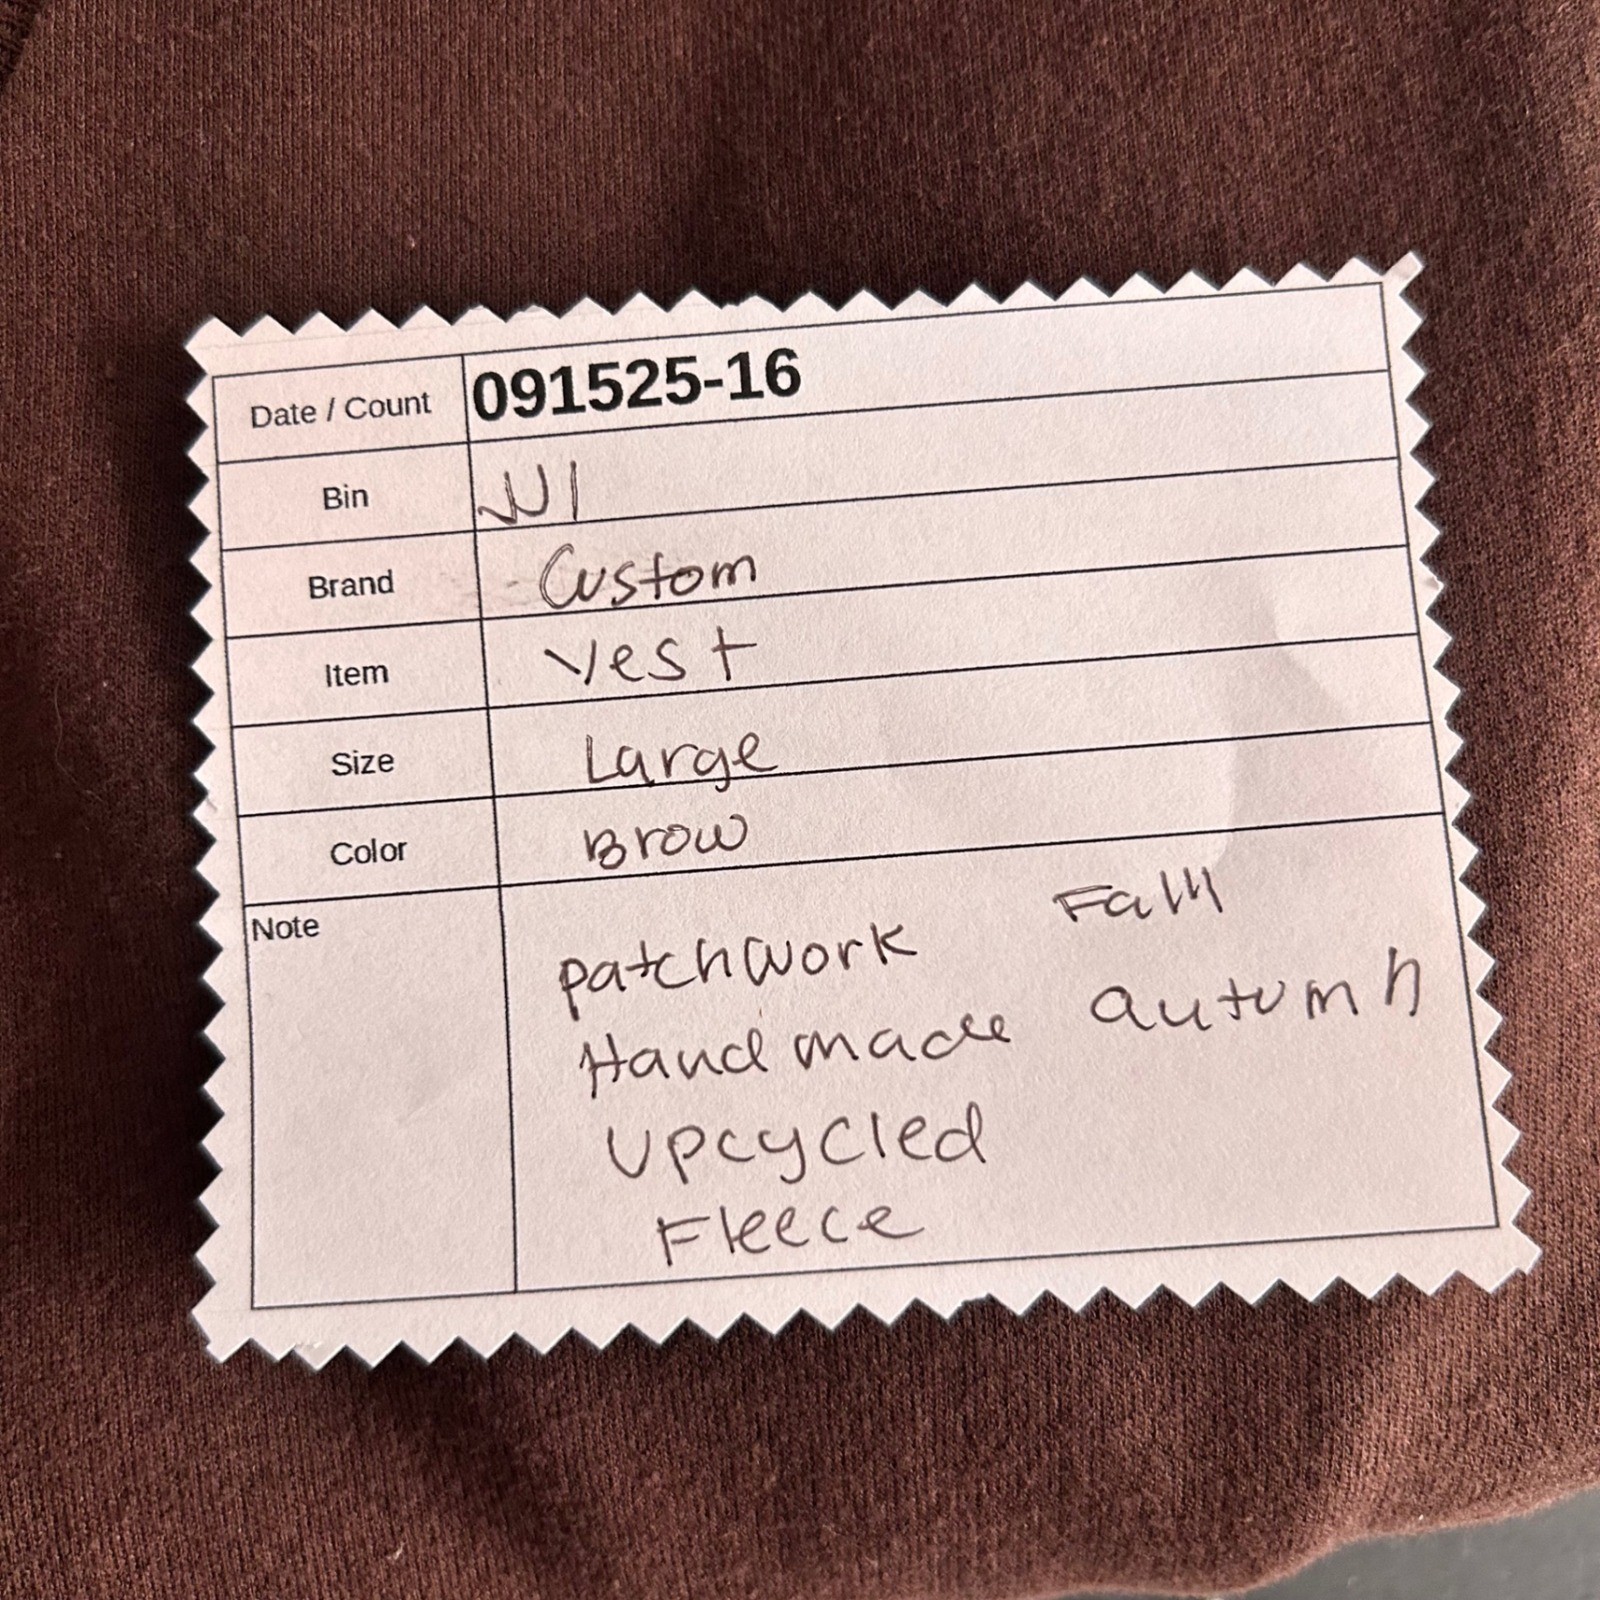 Date / Count 091525-16
Bin JU1
Brand Custom
Item Vest
Size Large
Color Brow
Note
patchwork Fall
Handmade autumn
Upcycled
Fleece